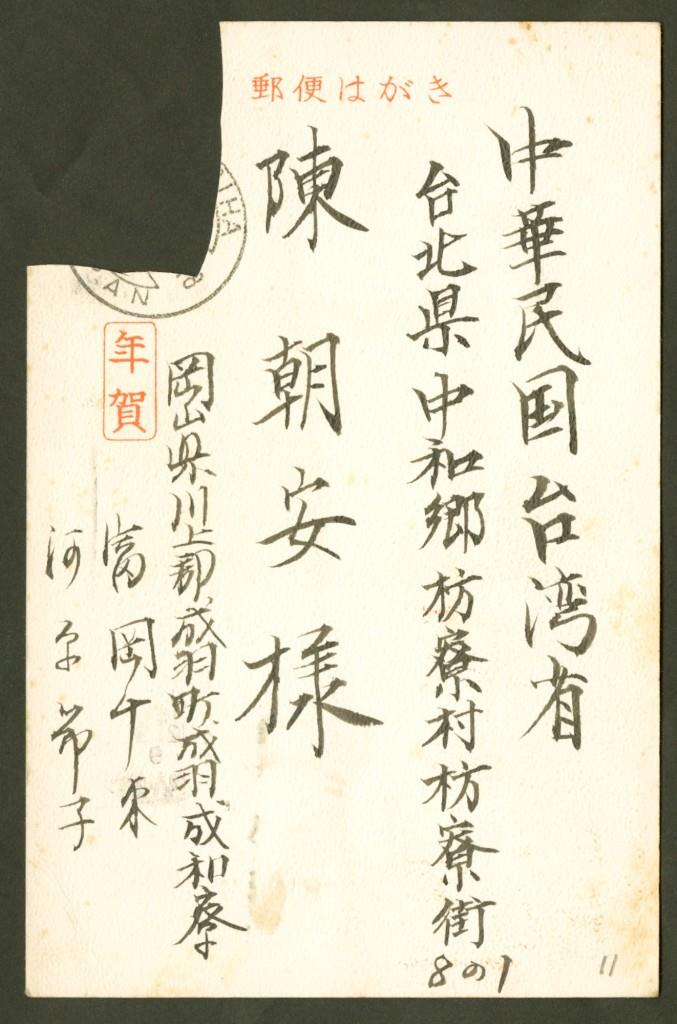 郵便はがき
中華民国台湾省
台北県中和郷枋寮村枋寮街
8の1
陳朝安様
岡山県川上郡成羽町成羽成和寮
年賀
富岡千
河原節子
11